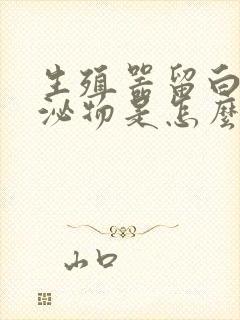 生殖器留白
泌物是怎麼
山口